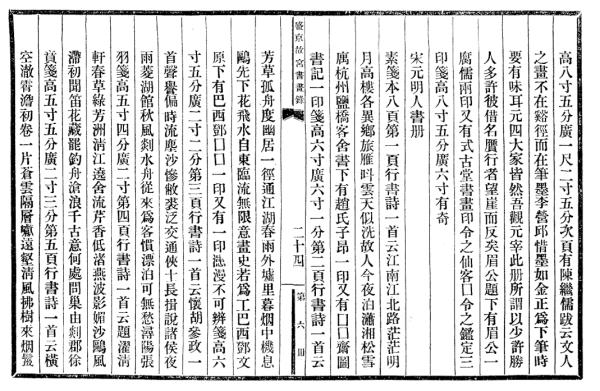 高八寸五分廣一尺二寸五分次頁有陳繼儒跋云文人
之畫不在谿徑而在筆墨李營邱惜墨如金正為下筆時
要有味耳元四大家皆然吾觀元宰此册所謂以少許勝
人多許彼借名贋行者望崖而反矣眉公題下有眉公一
腐儒兩印又有式古堂書畫印令之仙客囗令之鑑定三
印箋高八寸五分廣六寸有奇
宋元明人書册
素箋本八頁第一頁行書詩一首云江南江北路茫茫明
月高樓各異鄉旅雁呌雲天似洗故人今夜泊瀟湘松雪
寫杭州鹽橋客舍書下有趙氏子昂一印又有囗囗齋圖
書記一印箋高六寸廣六寸一分第二頁行書詩一首云
盛京故宮書畫錄
二十四
第六册
芳草孤舟度幽居一徑通江湖春雨外墟里暮烟中機息
鷗先下花飛水自東臨流無限意畫史若為工巴西鄧文
原下有巴西鄧囗囗囗印又有一印漶漫不可辨箋高六
寸五分廣二寸二分第三頁行書詩一首云懷胡參政一
首聲譽偏時流塵沙慘敝裘泛交通俠士長揖說諸侯夜
雨菱湖館秋風剡水舟從來為客慣漂泊可無愁潯陽張
羽箋高五寸四分廣二寸第四頁行書詩一首云題濯清
軒春草綠芳洲清江遶舍流芹香低渚燕波影媚沙鷗風
滯初聞笛花藏罷釣舟滄浪千古意何處問巢由剡郡徐
賁箋高五寸五分廣二寸三分第五頁行書詩一首云橫
空澈霄澹初卷一片蒼雲隔層巘遠壑清風拂樹來烟鬟